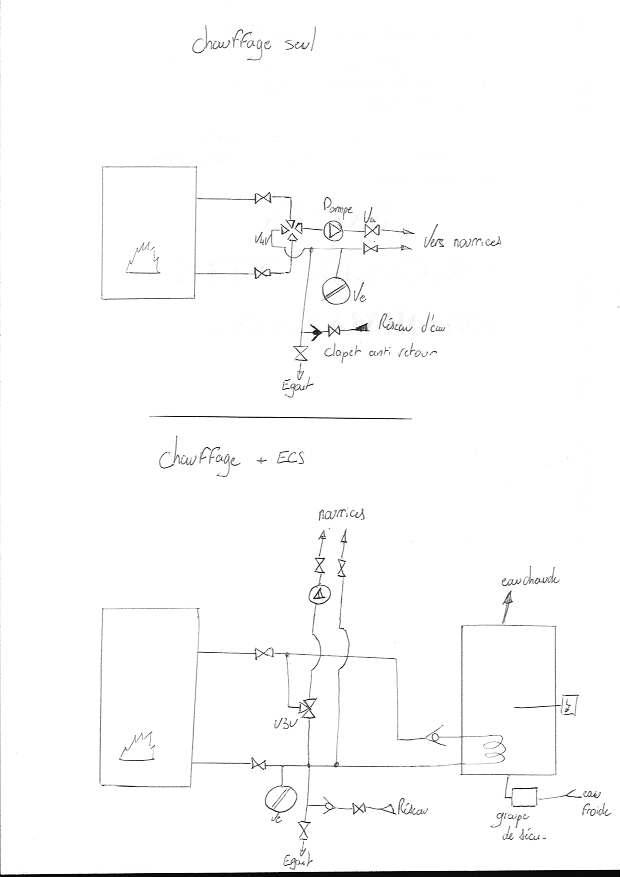 Chauffage seul
Pompe
Va
V4V
Vers nourrices
Ve
Réseau d'eau
clapet anti retour
Egout
Chauffage + ECS
nourrices
eau chaude
V3V
Ve
Réseau
Egout
eau
froide
groupe
de sécu-